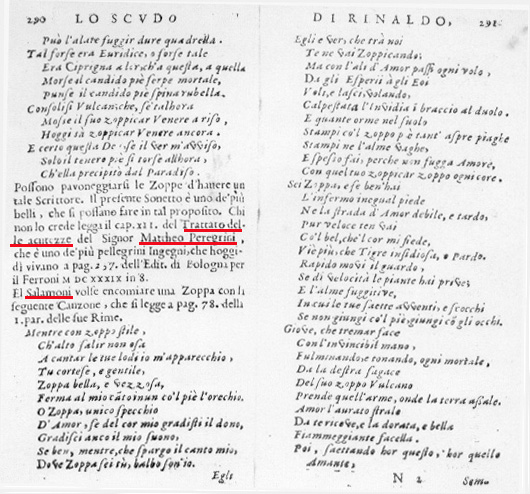 290 LO SCVDO
Può l'alate fuggir dure quadrella.
Tal forse era Euridice, o forse tale
Era Ciprigna allor ch'a questa, a quella
Morse il candido piè serpe mortale,
Punse il candido piè spina rubella.
Consolisi Vulcan; che, se talhora
Mosse il suo zoppicar Venere a riso,
Hoggi sà zoppicar Venere ancora.
E certo questa De' se il ver m'avviso,
Solo il tenero piè si torse allhora,
Ch'ella precipitò dal Paradiso.
Possono pavoneggiarsi le Zoppe d'hauere un
tale Scrittore. Il presente Sonetto è uno de' più
belli, che si possano fare in tal proposito. Chi
non lo crede legga il cap. XII. del Trattato del-
le acutezze del Signor Mattheo Peregrini,
che è uno de' più pellegrini Ingegni, che hoggi-
dì vivano a pag. 137. dell'Edit. di Bologna per
il Ferroni M DC XXXIX in 8.
Ed Salamoni volse encomiare una Zoppa con la
seguente Canzone, che si legge a pag. 78. della
1. par. delle sue Rime.
Mentre con zoppo stile,
Ch'alto salir non osa
A cantar le tue lodi io m'apparecchio,
Tu cortese, e gentile,
Zoppa bella, e vezzosa,
Ferma al mio canto in un co'l piè l'orechio.
O Zoppa, unico specchio
D'Amor, se del cor mio gradisti il dono,
Gradisci anco il mio suono,
Se ben, mentre, che spargo il canto mio,
Dove Zoppa sei tù, balbo son io.
Egli
DI RINALDO, 291
Egli è ver, che trà noi
Te ne vai Zoppicando;
Ma con l'ali d'Amor passi ogni volo,
Da gli Esperii à gli Eoi
Voli, e lasci volando,
Calpestata l'Invidia in braccio al duolo.
E quante orme nel suolo
Stampi co'l zoppo piè tant'aspre piaghe
Stampi ne l'alme vaghe,
E spesso fai, perche non fugga Amore,
Con quel tuo zoppicar zoppo ogni core.
Sei Zoppa, e se ben'hai
L'infermo inegual piede
Ne la strada d'Amor debile, e tardo,
Pur veloce ten vai
Co'l bel, che'l cor mi fiede,
Vie più, che Tigre insidiosa, o Pardo.
Rapido movi il guardo,
Se di velocità le piante hai prive;
E l'alme fuggitive,
In cui le tue saette avventi, e scocchi
Se non giungi co'l piè, giungi cò gli occhi.
Giove, che tremar face
Con l'invincibil mano,
Fulminando, e tonando, ogni mortale,
Da la destra sagace
Del suo zoppo Vulcano
Prende quell'arme, onde la terra assale.
Amor l'aurato strale
Da te riceve, e la dorata, e bella
Fiammeggiante facella.
Poi, saettando hor questo, hor quello
Amante,
N 2 Semo